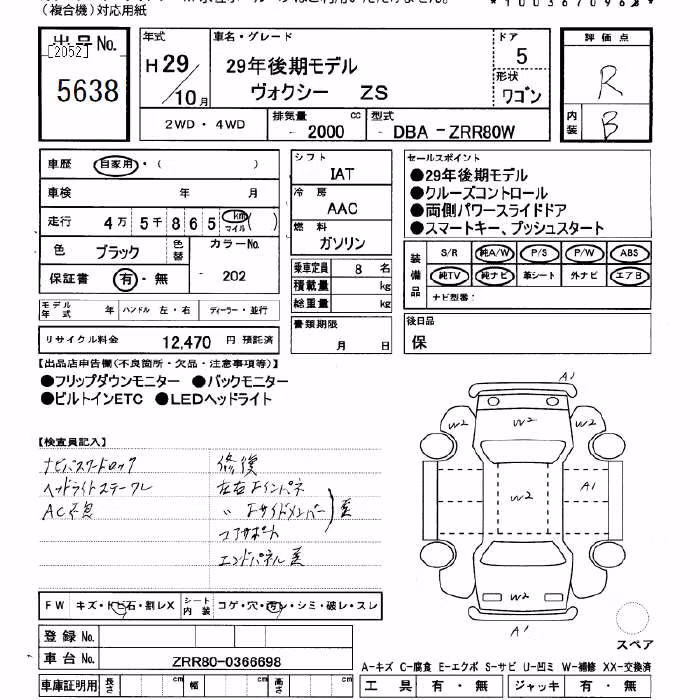 (複合機)対応用紙
*10036709639*
出品No.
[2052]
5638
年式
H 29
10月
車名・グレード
29年後期モデル
ヴォクシー ZS
ドア
5
形状
ワゴン
評価点
R
内装
B
2WD・4WD
排気量
- 2000 cc
型式
- DBA -ZRR80W
車歴 自家用・( )
車検 年 月
走行 4万 5千 8 6 5 km マイル ( )
色 ブラック
色替
カラーNo.
- 202
保証書 有・無
モデル年式 年
ハンドル 左・右
ディーラー・並行
リサイクル料金 12,470 円 預託済
シフト
IAT
冷房
AAC
燃料
ガソリン
乗車定員 8 名
積載量 kg
総重量 kg
書類期限
月 日
セールスポイント
●29年後期モデル
●クルーズコントロール
●両側パワースライドドア
●スマートキー、プッシュスタート
装備品
S/R 純A/W P/S P/W ABS
純TV 純ナビ 革シート 外ナビ エアB
ナビ型番:
後日品
保
【出品店申告欄(不良箇所・欠品・注意事項等)】
●フリップダウンモニター ●バックモニター
●ビルトインETC ●LEDヘッドライト
【検査員記入】
ナビパスワードロック
ヘッドライトステー
AC不良
修復
左右
コアサポート
エンドパネル
A1
W2
W2
W2
W2
A1
W2
A1
スペア
FW キズ・トビ石・割レX
シート内装 コゲ・穴・汚レ・シミ・破レ・スレ
登録No.
車台No. ZRR80-0366698
車庫証明用 長さ cm 幅 cm 高さ cm
A-キズ C-腐食 E-エクボ S-サビ U-凹ミ W-補修 XX-交換済
工具 有・無 ジャッキ 有・無